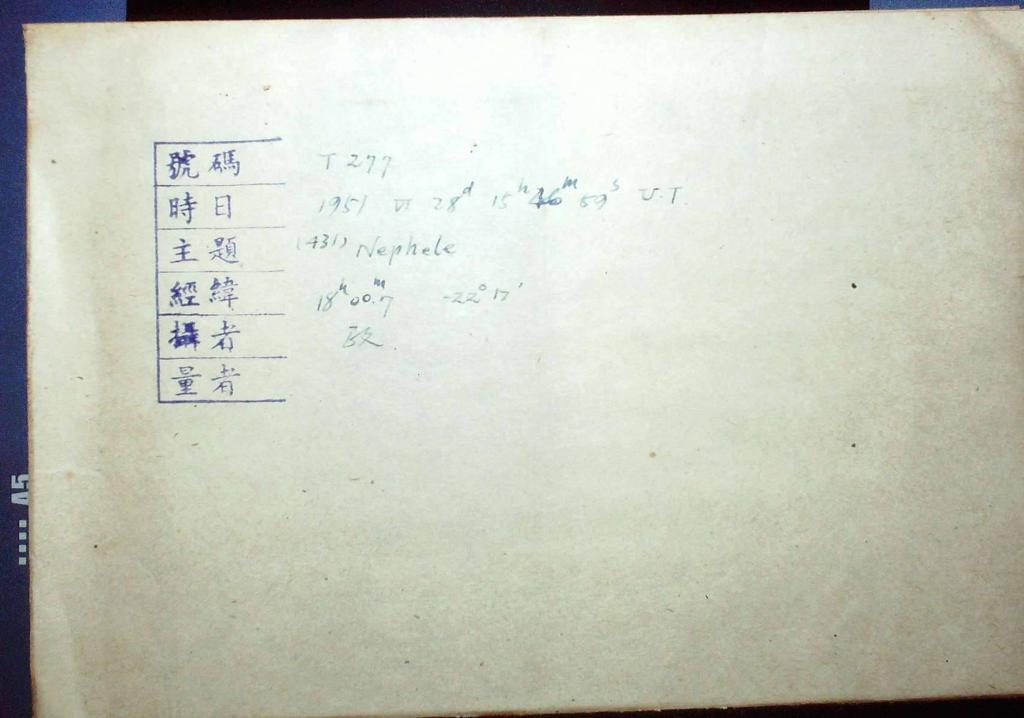 號碼 T 277
時日 1951 VI 28d 15h 46m 59s U.T.
主題 (431) Nephele
經緯 18h 00.m7 -22° 17'
攝者
量者
A5